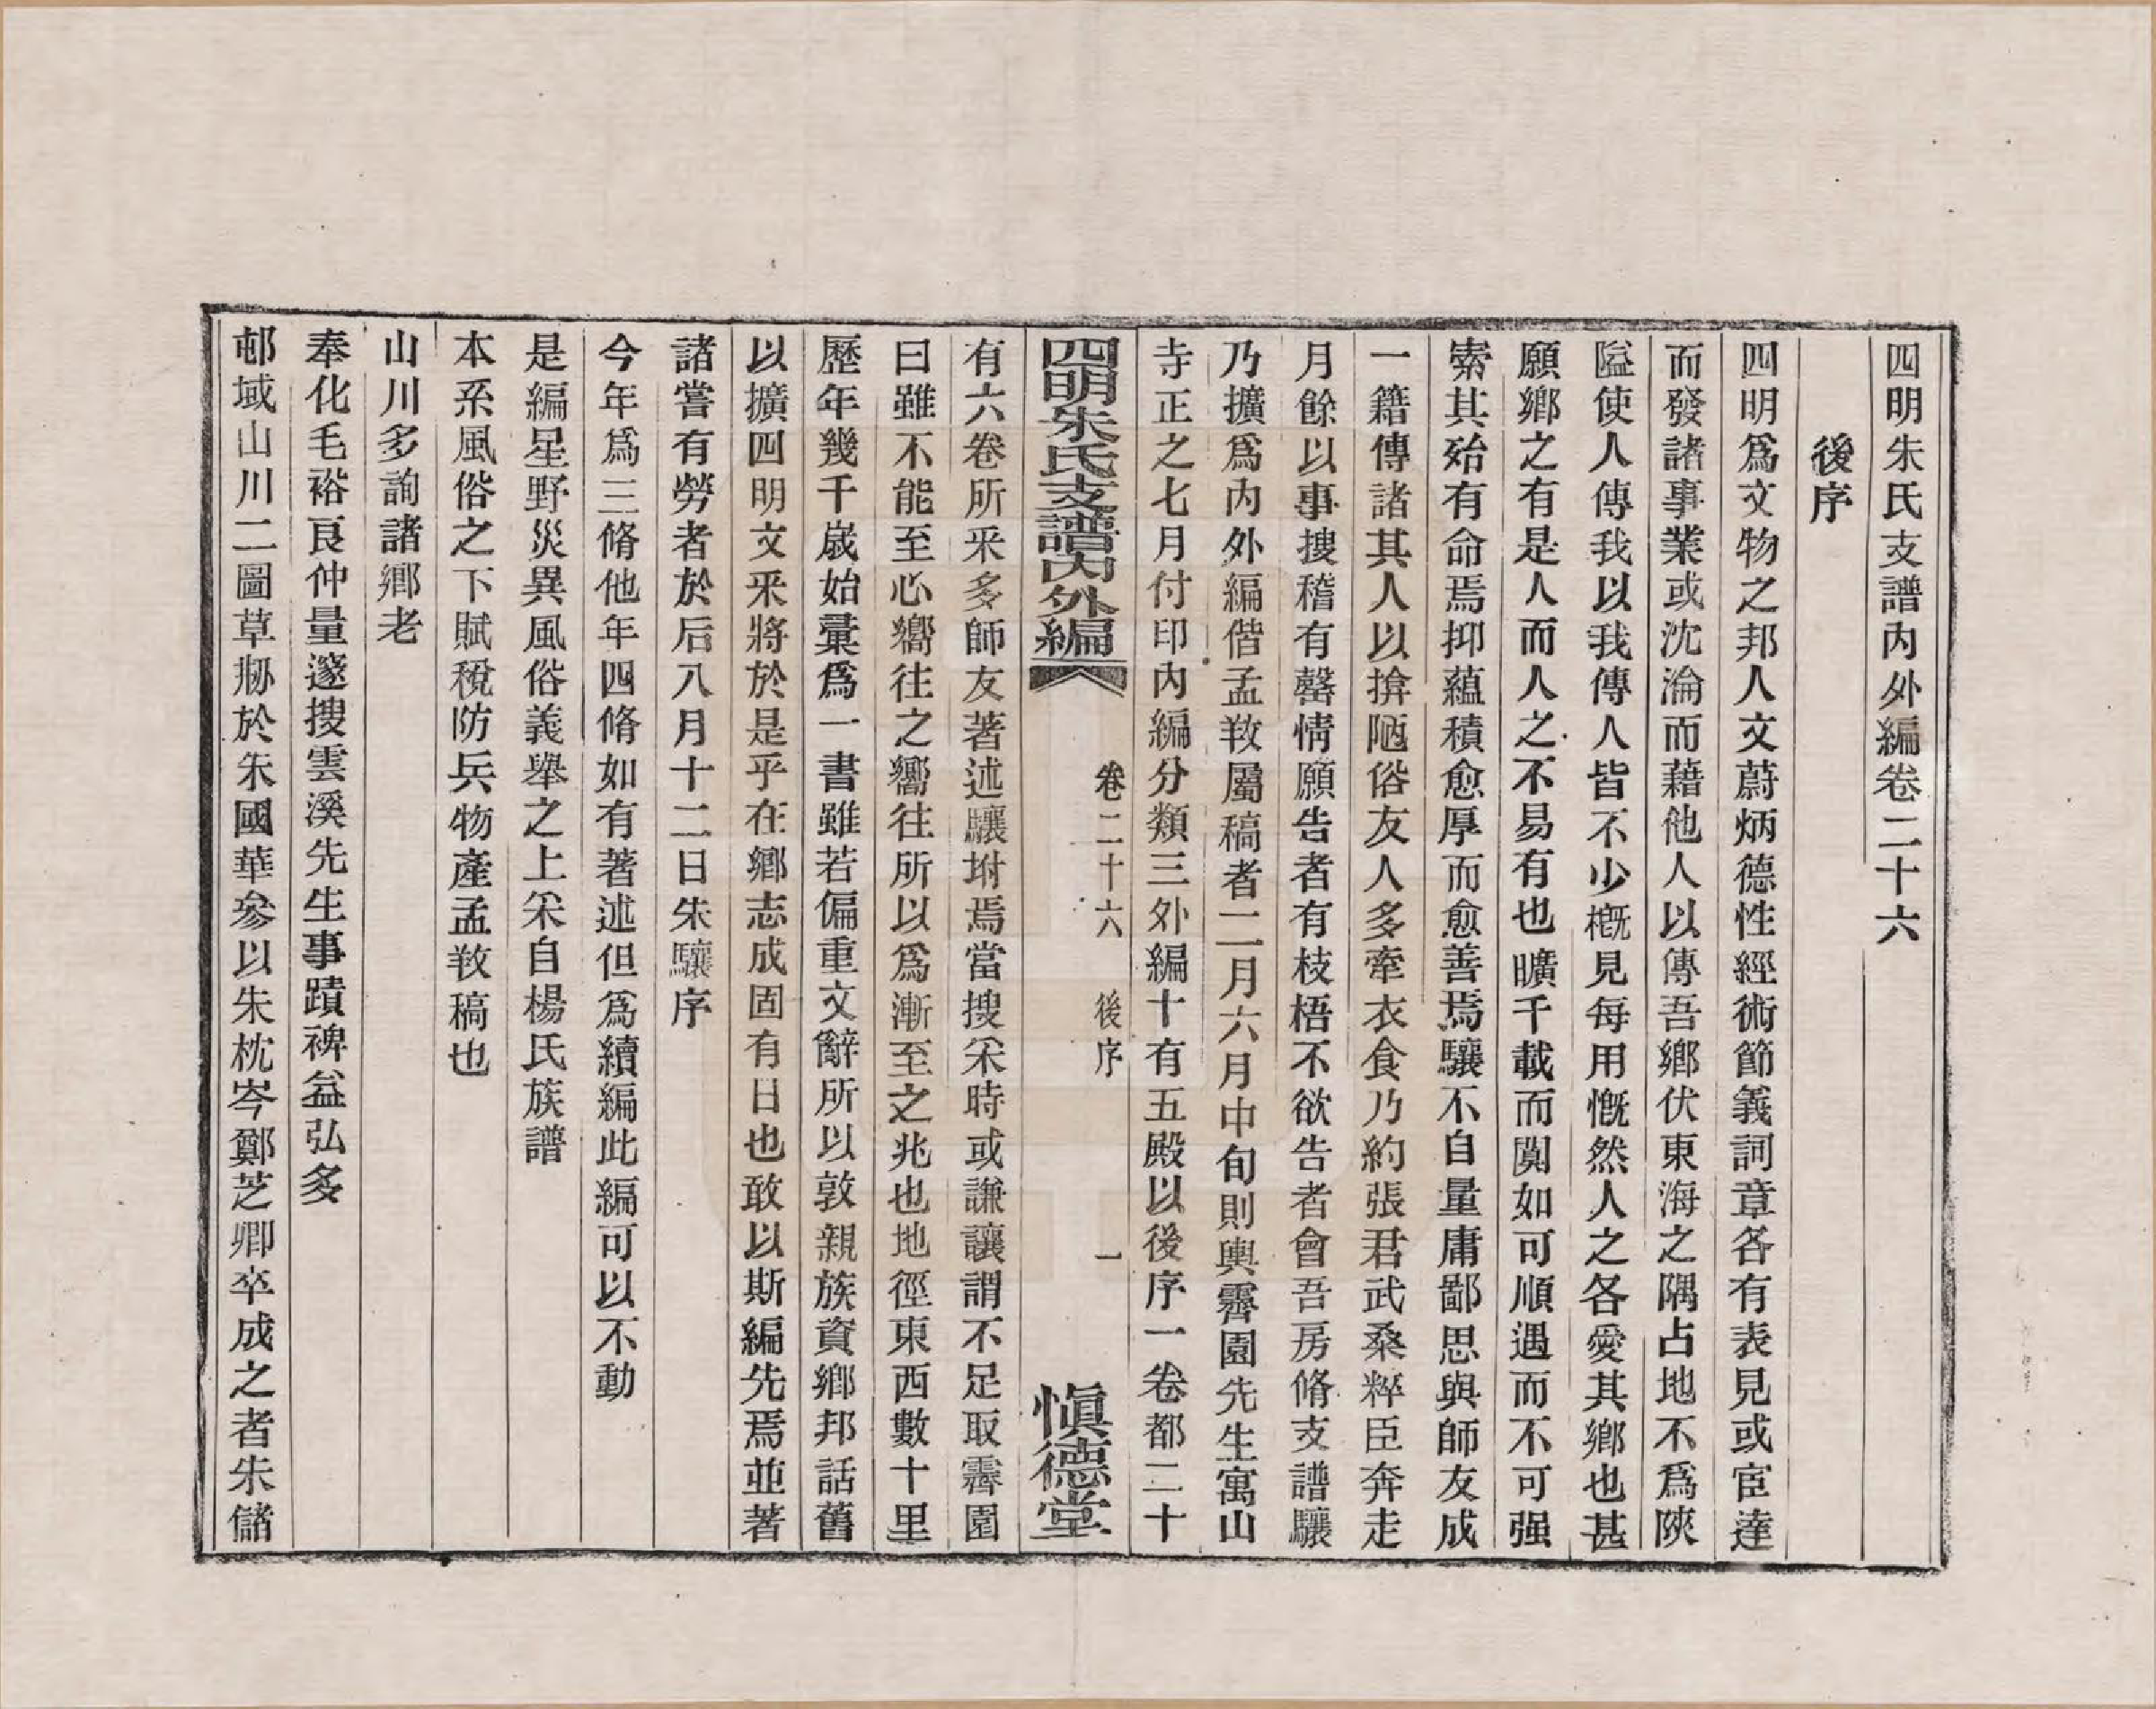 四明朱氏支譜內外編卷二十六
後序
四明爲文物之邦人文蔚炳德性經術節義詞章各有表見或宦達
而發諸事業或沈淪而藉他人以傳吾鄉伏東海之隅占地不爲陝
隘使人傳我以我傳人皆不少槪見每用慨然人之各愛其鄉也甚
願鄉之有是人而人之不易有也曠千載而闃如可順遇而不可强
索其殆有命焉抑蘊積愈厚而愈善焉驤不自量庸鄙思與師友成
一籍傳諸其人以揜陋俗友人多牽衣食乃約張君武桑粹臣奔走
月餘以事搜稽有罄情願告者有枝梧不欲告者會吾房脩支譜驤
乃擴爲內外編偕孟敩屬稿者二月六月中旬則輿霽園先生寓山
寺正之七月付印內編分類三外編十有五殿以後序一卷都二十
四明朱氏支譜內外編
卷二十六
後序
一
愼德堂
有六卷所采多師友著述驤坿焉當搜采時或謙讓謂不足取霽園
曰雖不能至心嚮往之嚮往所以爲漸至之兆也地徑東西數十里
歷年幾千嵗始彙爲一書雖若偏重文辭所以敦親族資鄉邦話舊
以擴四明文釆將於是乎在鄉志成固有日也敢以斯編先焉並著
諸嘗有勞者於后八月十二日朱驤序
今年爲三脩他年四脩如有著述但爲續編此編可以不動
是編星野災異風俗義舉之上采自楊氏族譜
本系風俗之下賦稅防兵物產孟敩稿也
山川多詢諸鄉老
奉化毛裕良仲量邃搜雲溪先生事蹟裨益弘多
邨域山川二圖草刱於朱國華參以朱枕岑鄭芝卿卒成之者朱儲